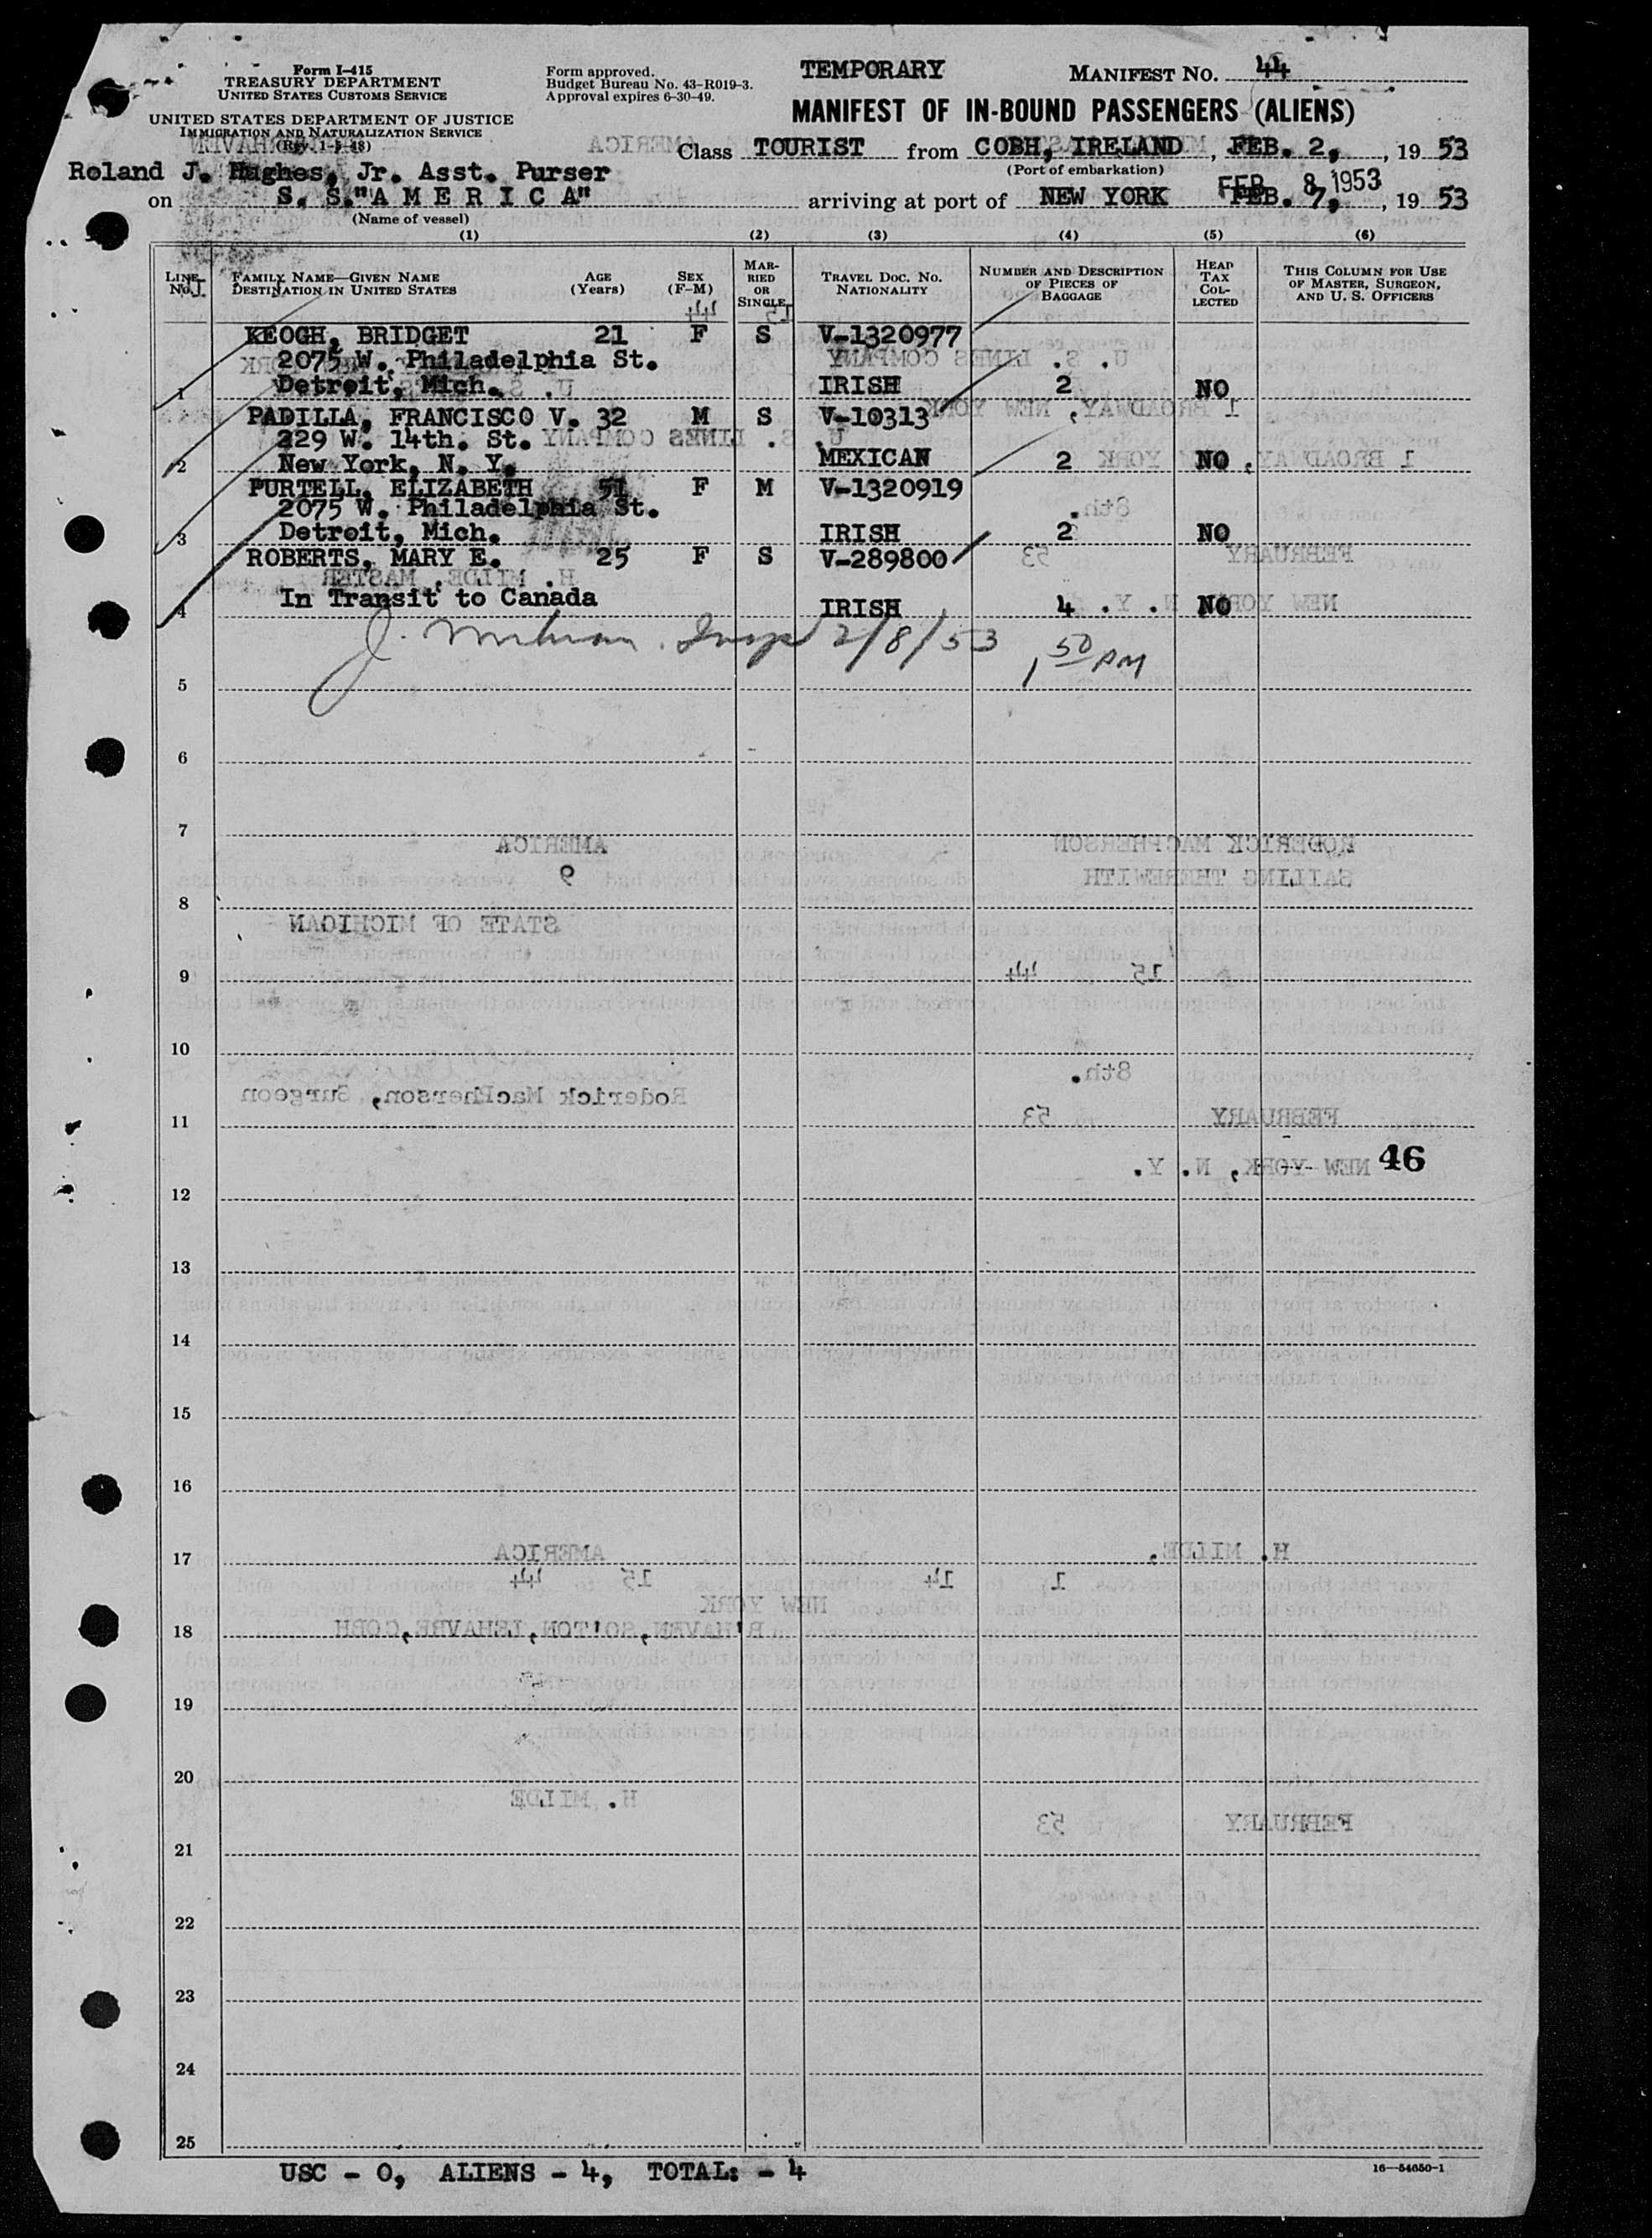 Form I-415
TREASURY DEPARTMENT
UNITED STATES CUSTOMS SERVICE
UNITED STATES DEPARTMENT OF JUSTICE
IMMIGRATION AND NATURALIZATION SERVICE
(Rev. 1-1-48)
Form approved.
Budget Bureau No. 43-R019-3.
Approval expires 6-30-49.
TEMPORARY
MANIFEST NO. 44
MANIFEST OF IN-BOUND PASSENGERS (ALIENS)
Class TOURIST from COBH, IRELAND, FEB. 2, , 19 53
(Port of embarkation)
Roland J. Hughes, Jr. Asst. Purser
on S. S. "A M E R I C A" arriving at port of NEW YORK FEB. 7, , 19 53
FEB 8 1953
(Name of vessel)
(1) (2) (3) (4) (5) (6)
LINE No. FAMILY NAME—GIVEN NAME DESTINATION IN UNITED STATES AGE (Years) SEX (F-M) MARRIED OR SINGLE TRAVEL DOC. NO. NATIONALITY NUMBER AND DESCRIPTION OF PIECES OF BAGGAGE HEAD TAX COLLECTED THIS COLUMN FOR USE OF MASTER, SURGEON, AND U. S. OFFICERS
KEOGH, BRIDGET 21 F S V-1320977
2075 W. Philadelphia St.
1 Detroit, Mich. IRISH 2 NO
PADILLA, FRANCISCO V. 32 M S V-10313
229 W. 14th. St.
2 New York, N. Y. MEXICAN 2 NO
PURTELL, ELIZABETH 51 F M V-1320919
2075 W. Philadelphia St.
3 Detroit, Mich. IRISH 2 NO
ROBERTS, MARY E. 25 F S V-289800
In Transit to Canada
4 IRISH 4 NO
J. Insp 2/8/53 1 50 PM
5
6
7
8
9
10
11
46
12
13
14
15
16
17
18
19
20
21
22
23
24
25
USC - 0, ALIENS - 4, TOTAL: - 4
16—54650-1